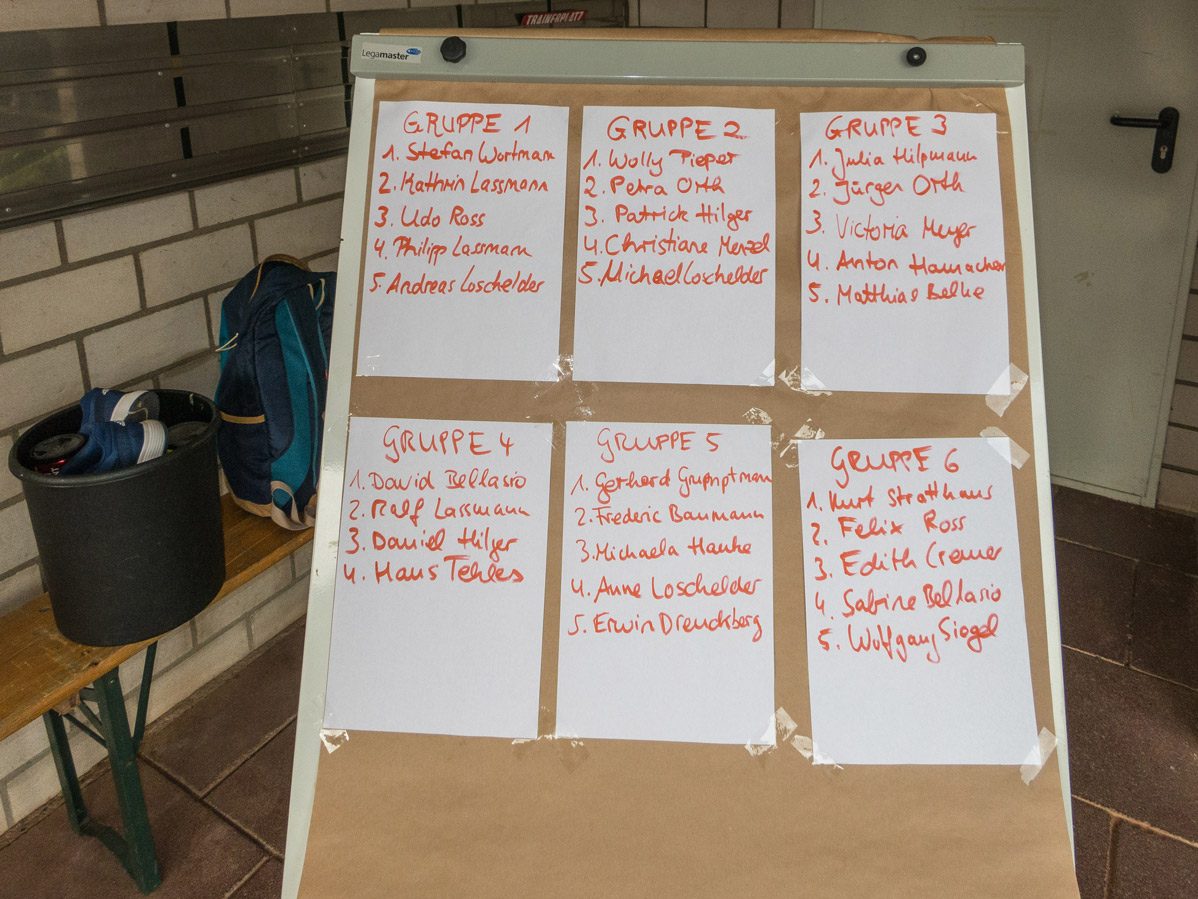 TRAINERPLATZ
Legamaster
GRUPPE 1
1. Stefan Wortmann
2. Kathrin Lassmann
3. Udo Ross
4. Philipp Lassmann
5. Andreas Loschelder
GRUPPE 2
1. Wolly Pieper
2. Petra Orth
3. Patrick Hilger
4. Christiane Menzel
5. Michael Loschelder
GRUPPE 3
1. Julia Hilpmann
2. Jürgen Orth
3. Victoria Meyer
4. Anton Hamacher
5. Matthias Belke
GRUPPE 4
1. David Bellasio
2. Ralf Lassmann
3. Daniel Hilger
4. Hans Tehles
GRUPPE 5
1. Gerhard
2. Frederic Baumann
3. Michaela Hanke
4. Anne Loschelder
5. Erwin Drenckberg
GRUPPE 6
1. Kurt Stratthaus
2. Felix Ross
3. Edith Cremer
4. Sabine Bellasio
5. Wolfgang Siegel